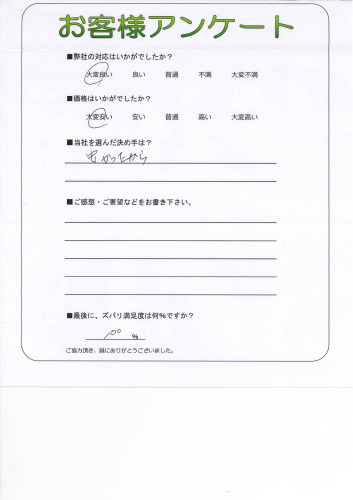 お客様アンケート
■弊社の対応はいかがでしたか？
大変良い 良い 普通 不満 大変不満
■価格はいかがでしたか？
大変安い 安い 普通 高い 大変高い
■当社を選んだ決め手は？
安かったから
■ご感想・ご要望などをお書き下さい。
■最後に、ズバリ満足度は何％ですか？
100 %
ご協力頂き、誠にありがとうございました。